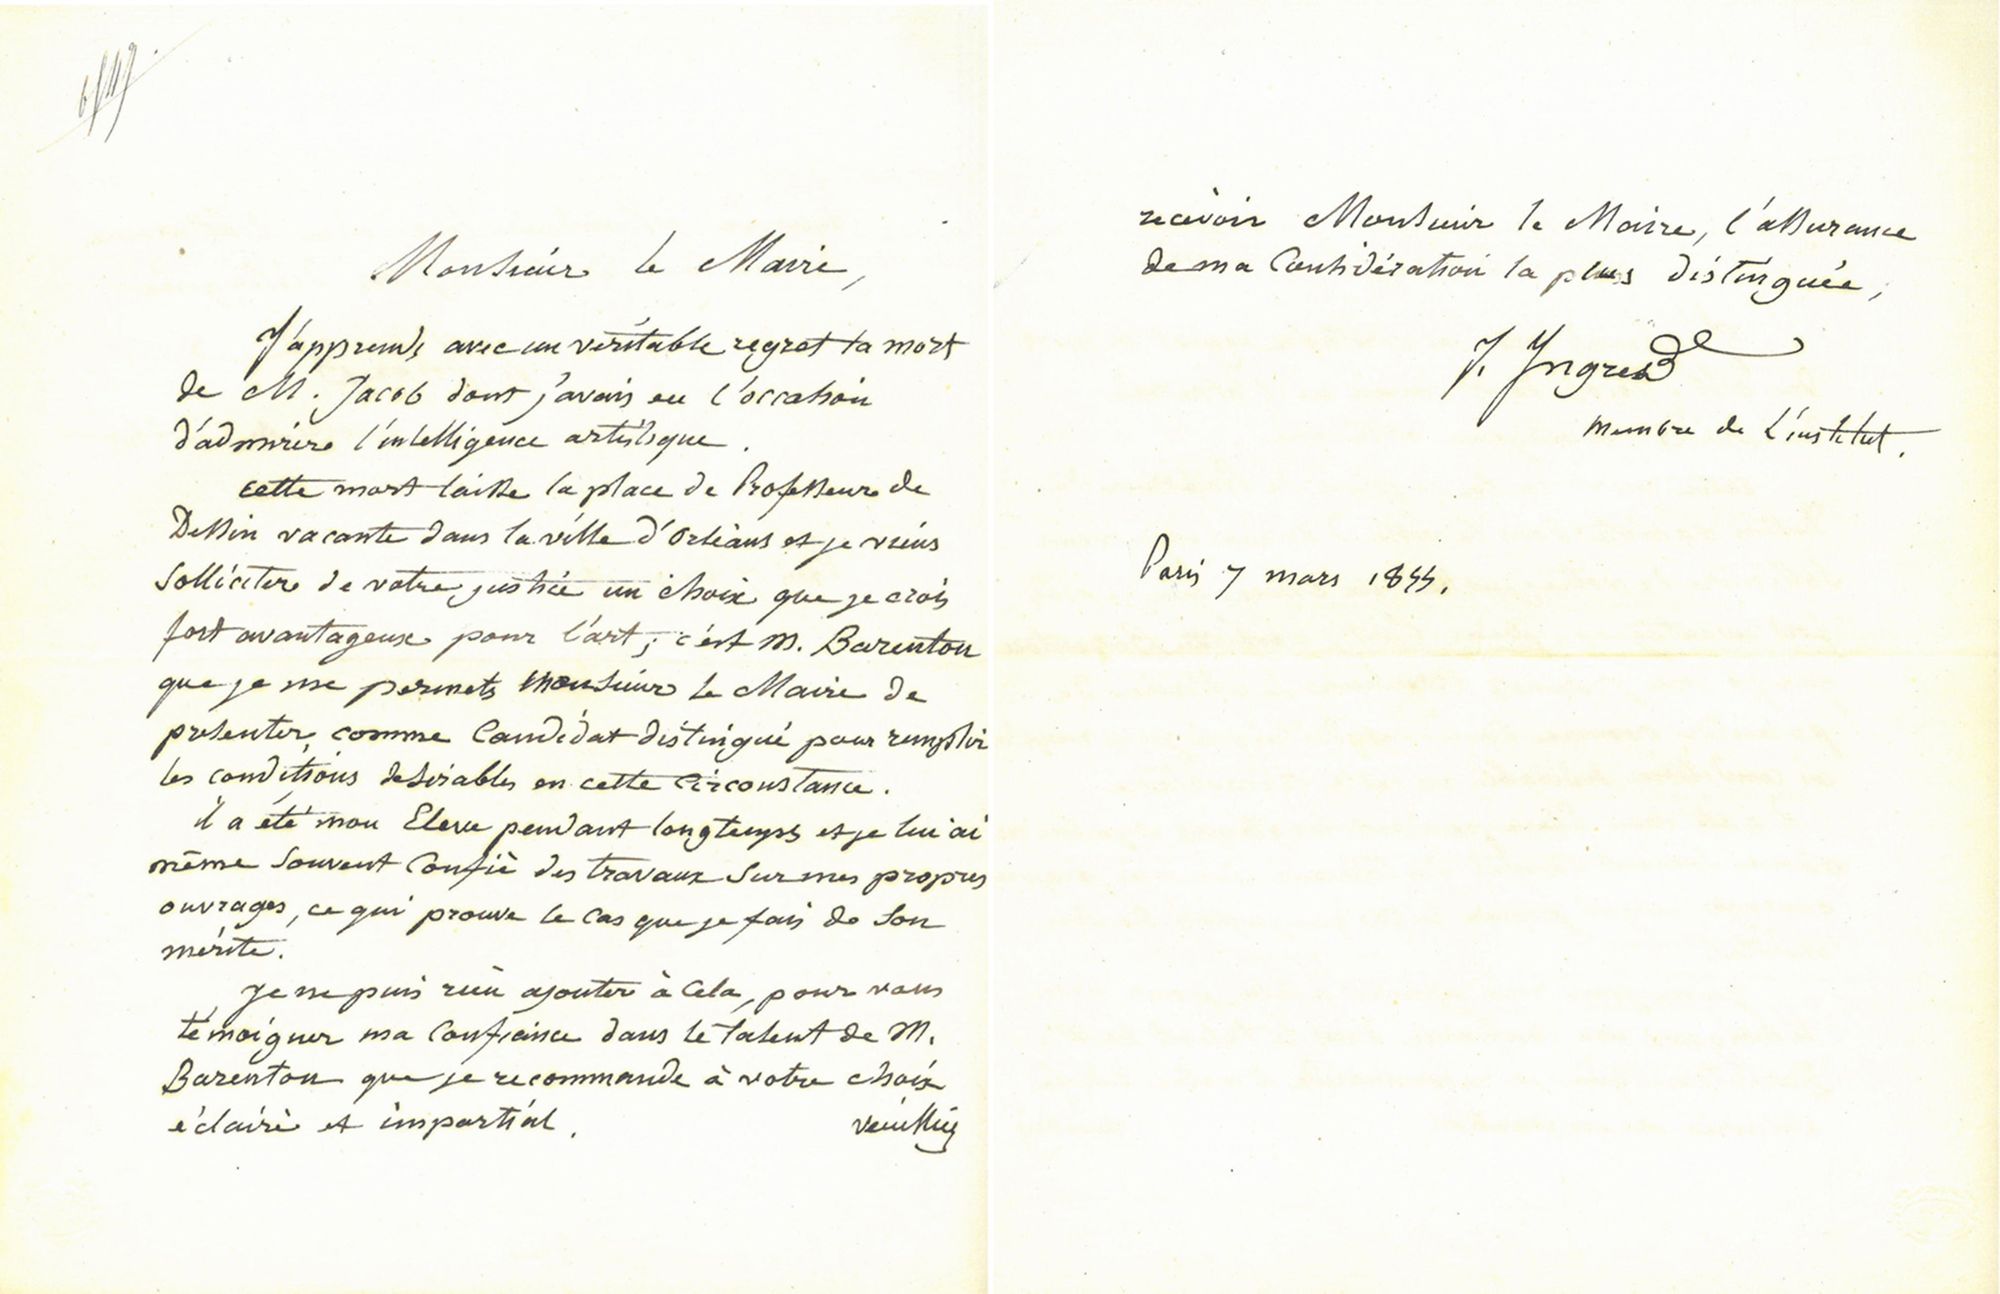 Monsieur le Maire,
J'apprends avec un véritable regret la mort
de M. Jacob dont j'avais eu l'occasion
d'admirer l'intelligence artistique.
cette mort laisse la place de Professeur de
Dessin vacante dans la ville d'Orléans et je viens
solliciter de votre justice un choix que je crois
fort avantageux pour l'art; c'est M. Barenton
que je me permets Monsieur le Maire de
présenter comme Candidat distingué pour remplir
les conditions désirables en cette Circonstance.
il a été mon Eleve pendant longtemps et je lui ai
même Souvent Confié des travaux Sur mes propres
ouvrages, ce qui prouve le Cas que je fais de Son
mérite.
Je ne puis rien ajouter à Cela, pour vous
témoigner ma Confiance dans le talent de M.
Barenton que je recommande à votre choix
éclairé et impartial. veuillez
recevoir Monsieur le Maire, l'assurance
de ma Considération la plus distinguée,
J. Ingres
membre de L'institut.
Paris 7 mars 1855.